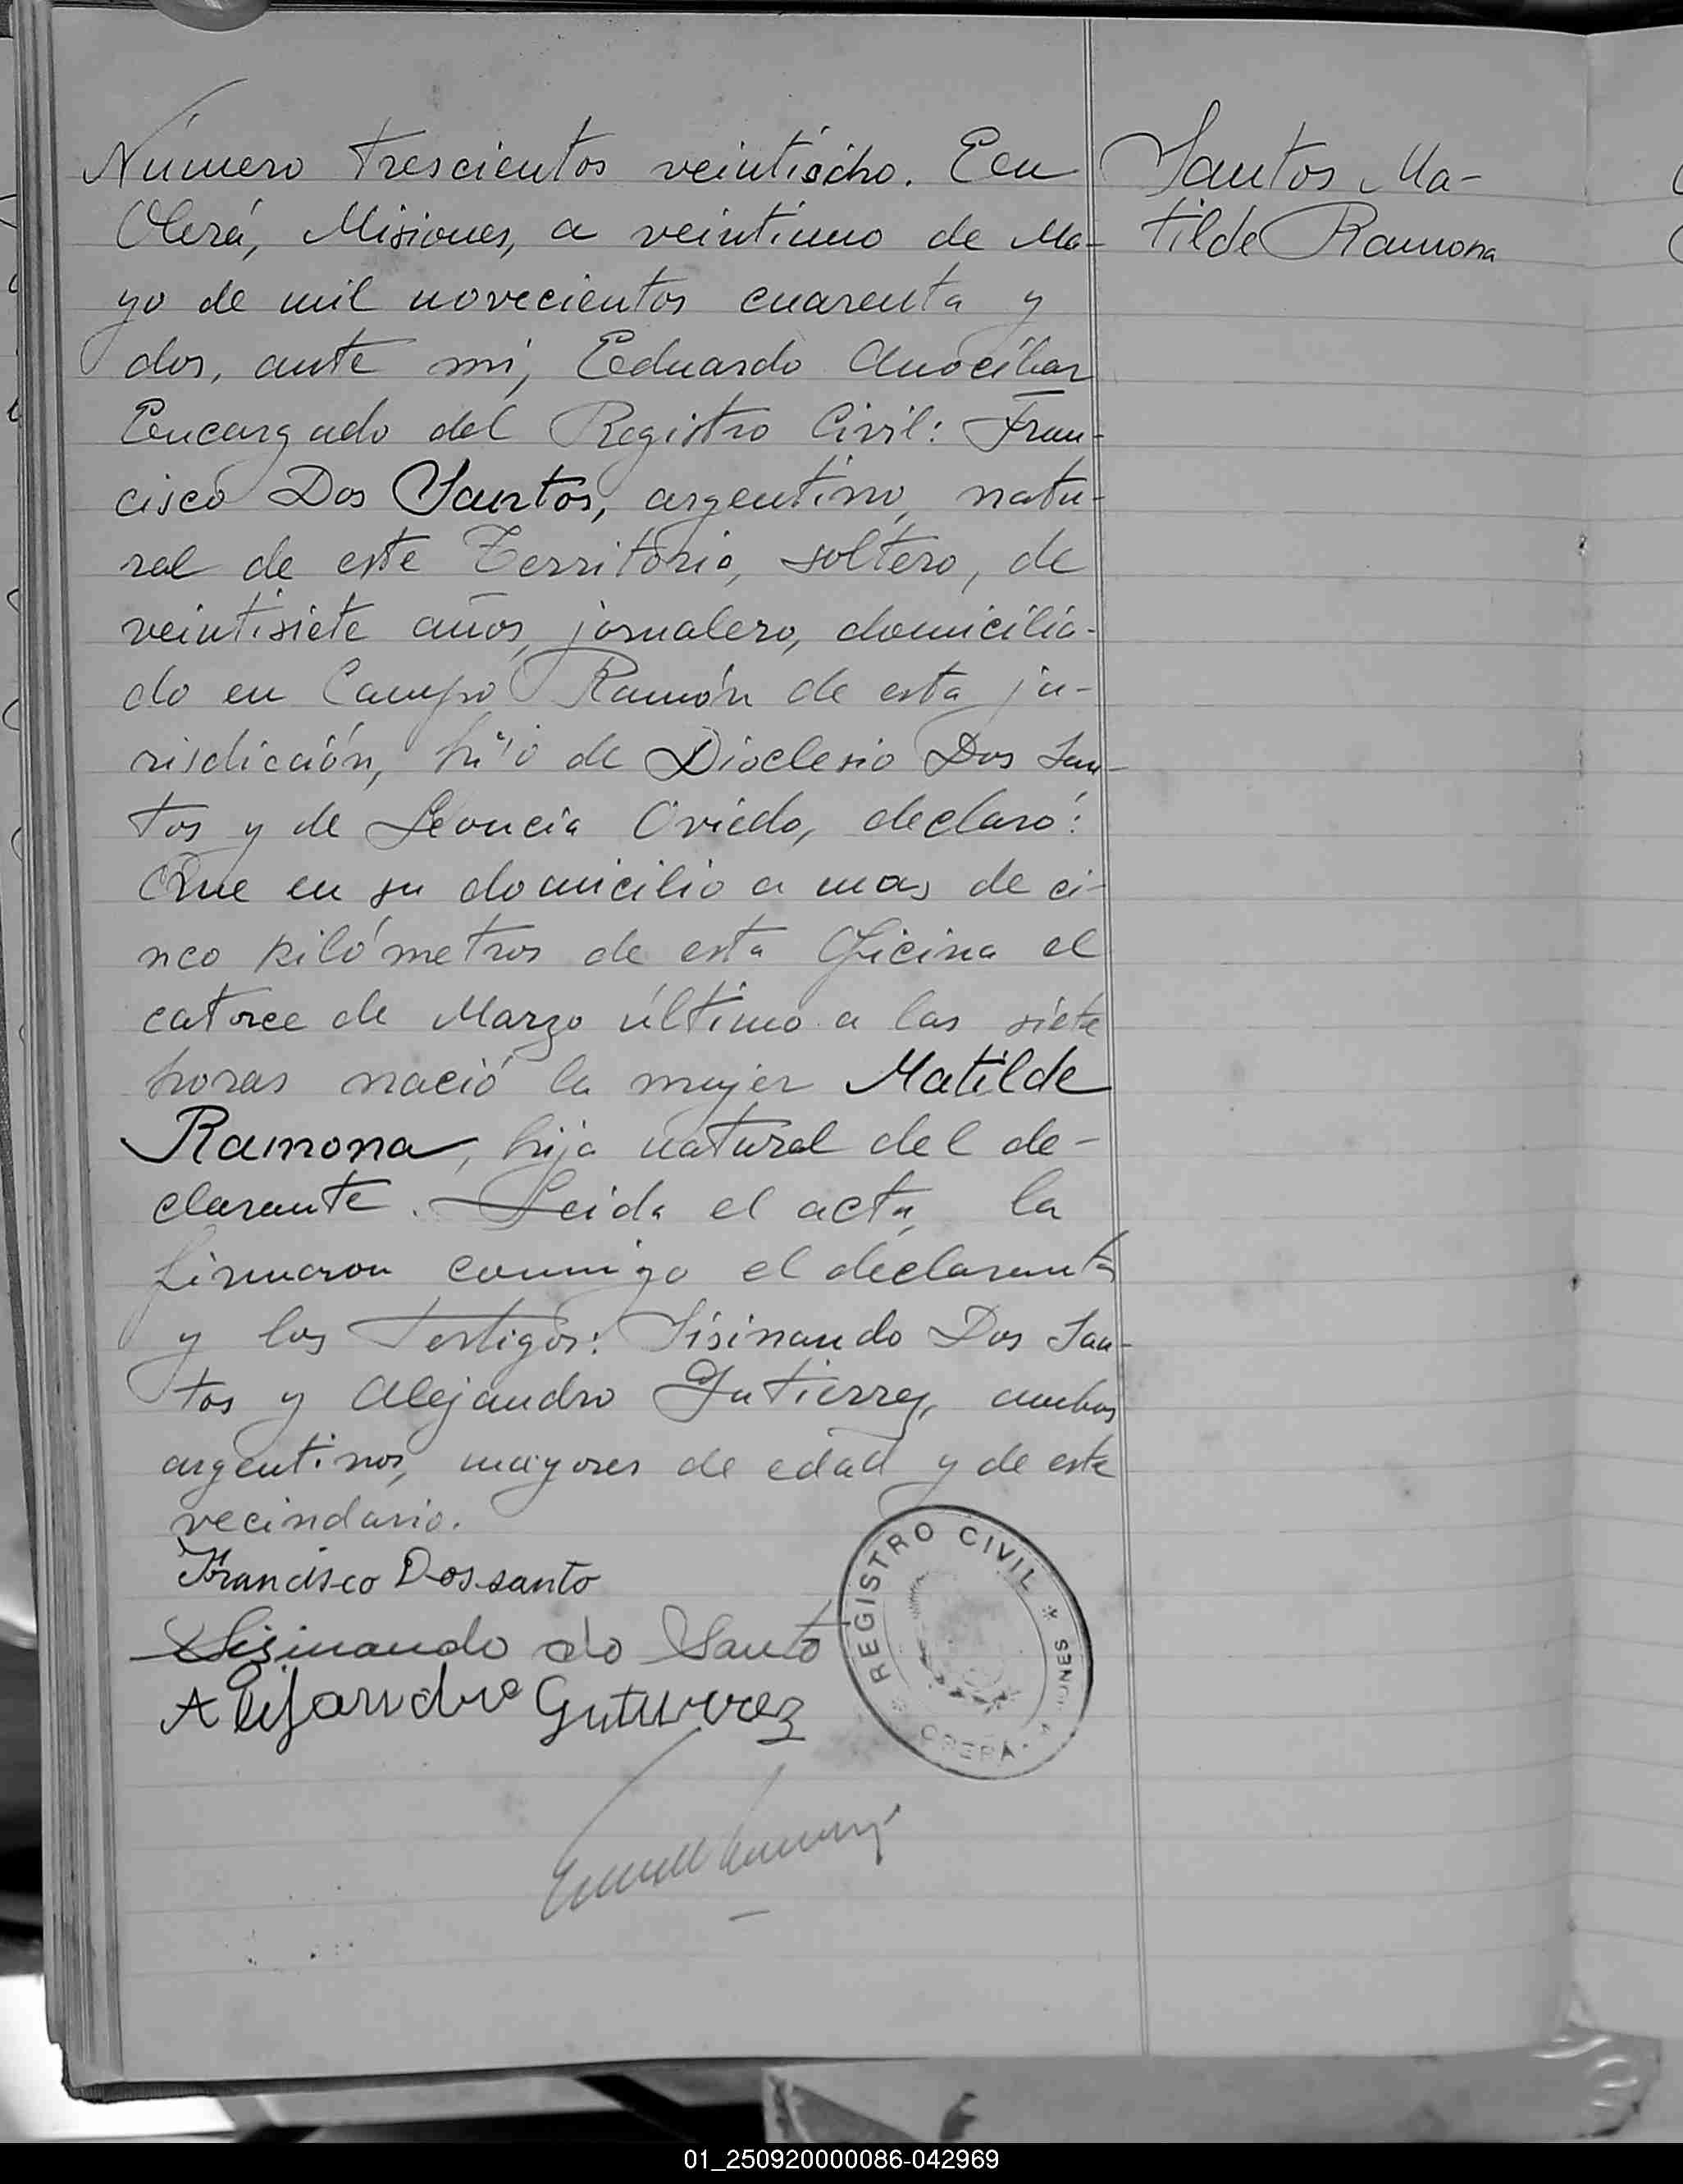 Número trescientos veintiocho. En
Oberá, Misiones, a veintiuno de Ma-
yo de mil novecientos cuarenta y
dos, ante mi, Eduardo Anocibar
Encargado del Registro Civil: Fran-
cisco Dos Santos, argentino, natu-
ral de este Territorio, soltero, de
veintisiete años, jornalero, domicilia-
do en Campo Ramón de esta ju-
risdicción, hijo de Dioclesio Dos San-
tos y de Leoncia Oviedo, declaró:
Que en su domicilio a mas de ci-
nco kilómetros de esta Oficina el
catorce de Marzo último a las siete
horas nació la mujer Matilde
Ramona, hija natural del de-
clarante. Leida el acta, la
firmaron conmigo el declarante
y los Testigos: Sisinando Dos San-
tos y Alejandro Gutierrez, ambos
argentinos, mayores de edad y de este
vecindario.
Francisco Dossanto
Sisinando do Santo
Alejandro Gutierrez
Santos Ma-
tilde Ramona
REGISTRO CIVIL
OBERÁ - MISIONES
01_250920000086-042969